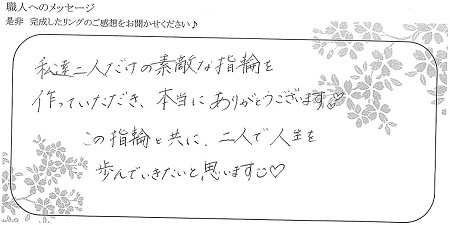 職人へのメッセージ
是非 完成したリングのご感想をお聞かせください♪
私達二人だけの素敵な指輪を
作っていただき、本当にありがとうございます♡
この指輪と共に、二人で人生を
歩んでいきたいと思います☺♡